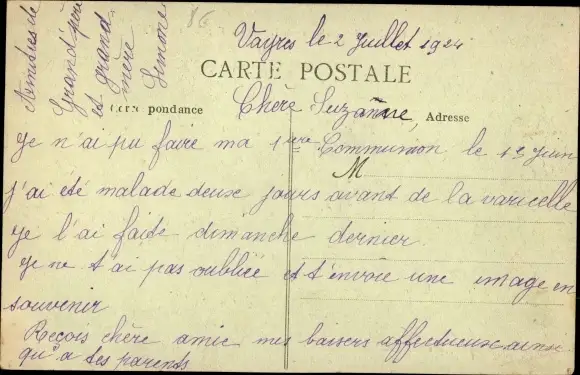 Vayres le 2 Juillet 1924
CARTE POSTALE
Correspondance
Adresse
M
Chère Suzanne,
Je n'ai pu faire ma 1ère Communion le 15 Juin
j'ai été malade deux jours avant de la varicelle
je l'ai faite dimanche dernier.
Je ne t'ai pas oubliée et t'envoie une image en
souvenir
Reçois chère amie mes baisers affectueux ainsi
qu'a tes parents
Amitiés de
Grand'père
et grand
mère
Simone